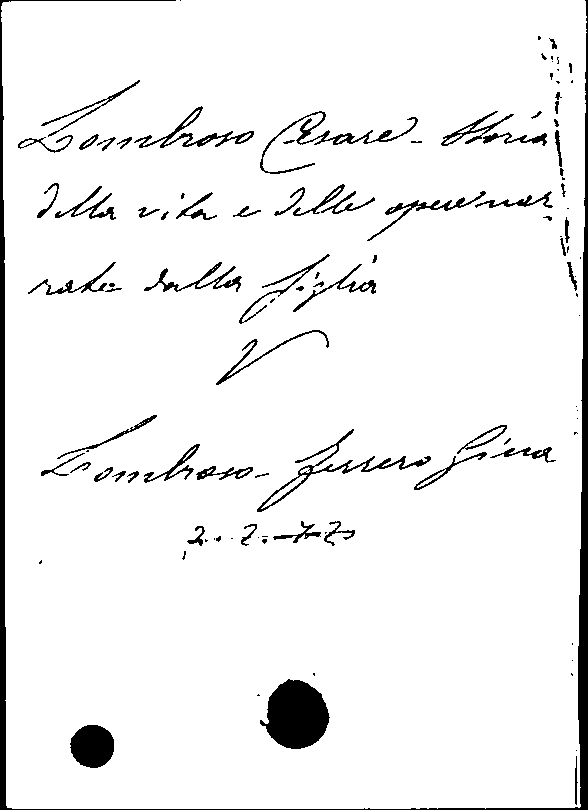 Lombroso Cesare - Storia
della vita e delle opere nar-
rate dalla figlia
V
Lombroso - Ferrero Gina